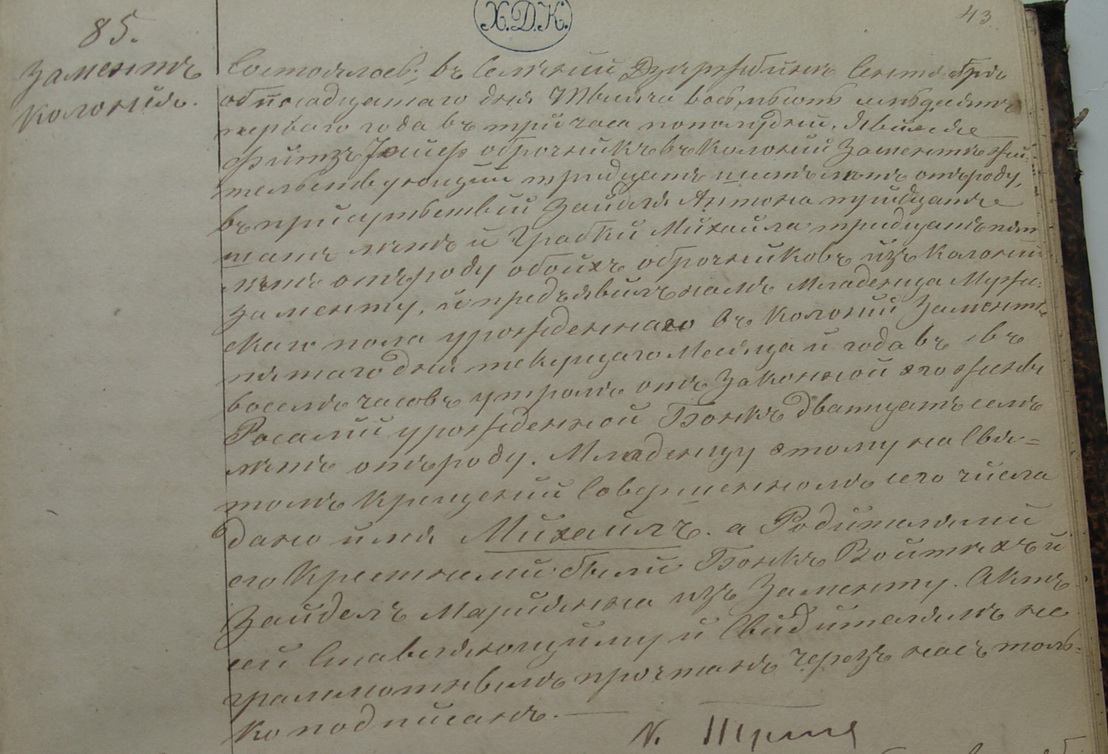 Х.Д.К.
43
85.
Заментъ
Колонія.
Состоялось въ Селѣніи Сентября
одиннадцатаго дня Тысяча восемьсотъ
перваго года въ три часа пополудни. Явился
Фитзъ оброчникъ въ Колоніи Заментъ жи-
тельствующій тридцать шесть лѣтъ отъ роду,
въ присутствіи Зайдля Антона тридцати
лѣтъ и Михаила тридцать пяти
лѣтъ отъ роду обоихъ оброчниковъ изъ Колоніи
Заменту, и предъявилъ намъ Младенца Муже-
скаго пола урожденнаго въ Колоніи Заментъ
пятаго дня текущаго Месяца и года въ
восемь часовъ утромъ отъ Законной его жены
Росаліи урожденной Бонкъ двадцать семь
лѣтъ отъ роду. Младенцу этому на Свя-
томъ Крещеніи Совершенномъ сего числа
дано имя Михаилъ. а Родителями
его Крестными были Бонкъ Войтѣхъ и
Зайдель Маріянна изъ Заменту. Актъ
сей Объявляющему и Свидителямъ не
грамотнымъ прочтанъ Черезъ насъ толь-
ко подписанъ.